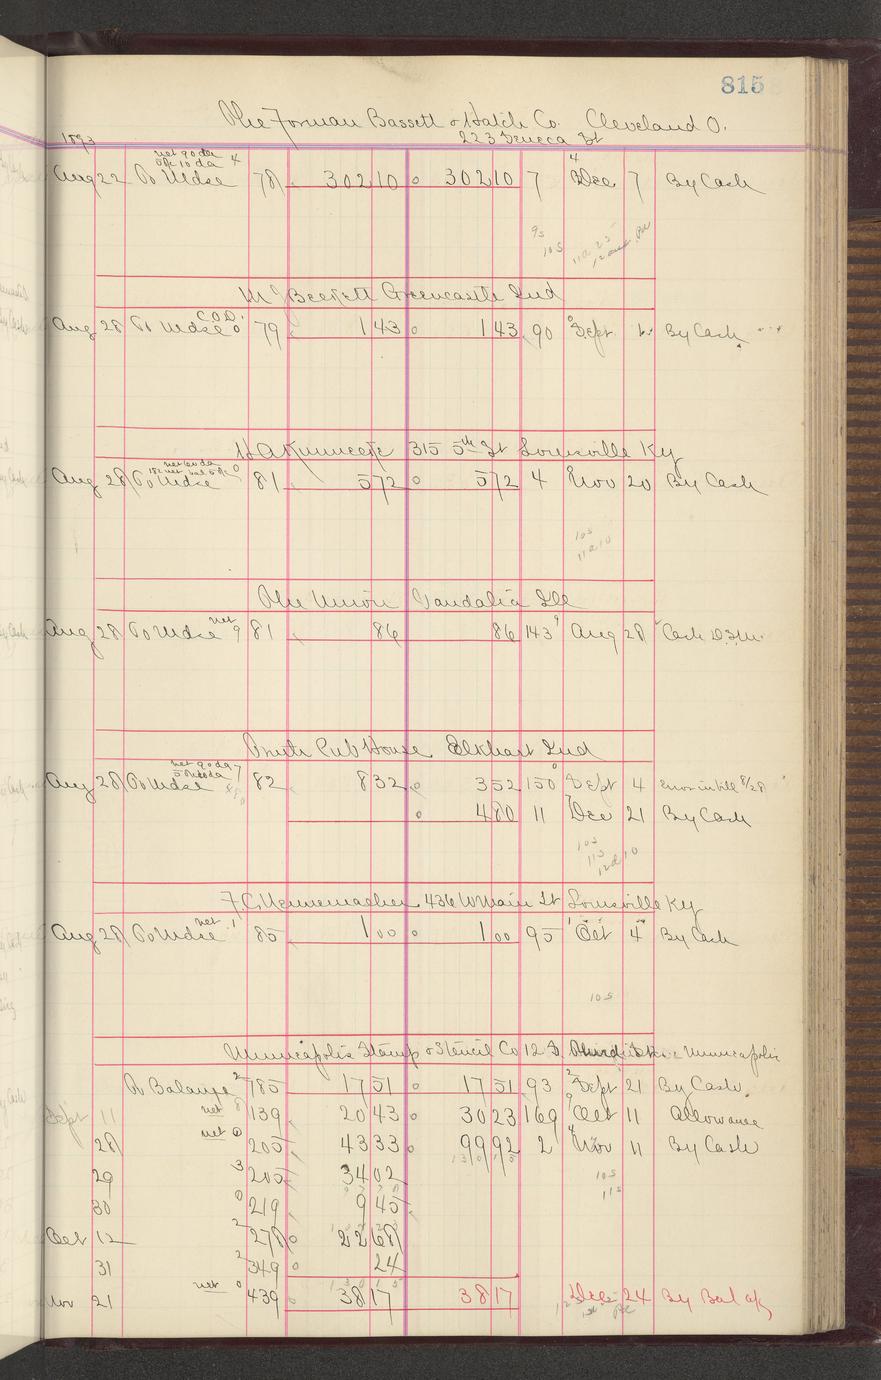 815
The Forman Bassett & Hatch Co. Cleveland O.
223 Seneca St
1893
net 90 da 4
5% 10 da
Aug 22 To Mdse 78 302 10 302 10 7 Dec 7 By Cash
9s 10s
Beckett Greencastle Ind
C.O.D.
Aug 28 To Mdse 0 79 1 43 1 43 90 Sept By Cash
315 5th St Louisville Ky
Aug 28 To Mdse 0 81 5 72 5 72 4 Nov 20 By Cash
10s
11d10
The Union Vandalia Ill
net
Aug 28 To Mdse 9 81 86 86 143 Aug 28 Cash
Pub House Elkhart Ind
net 90 da 7
Aug 28 To Mdse 82 8 32 3 52 150 Sept 4 Error in bill 8/28
4 80 11 Dec 21 By Cash
10s
11s
12d10
F.C. Nunemacher 436 W Main St Louisville Ky
net
Aug 28 To Mdse 1 85 1 00 1 00 95 Oct 4 By Cash
10s
Minneapolis Stamp & Stencil Co 12 S. Third Minneapolis
To Balance 2 785 17 51 17 51 93 Sept 21 By Cash
Sept 11 net 8 139 20 43 30 23 169 Oct 11 Allowance
28 net 0 205 43 33 99 92 2 Nov 11 By Cash
29 3 205 34 02
10s
11s
30 0 219 9 45
Oct 12 2 278 22 68
31 2 349 24
130 15
Nov 21 net 0 439 38 17 38 17 Dec 24 By Bal